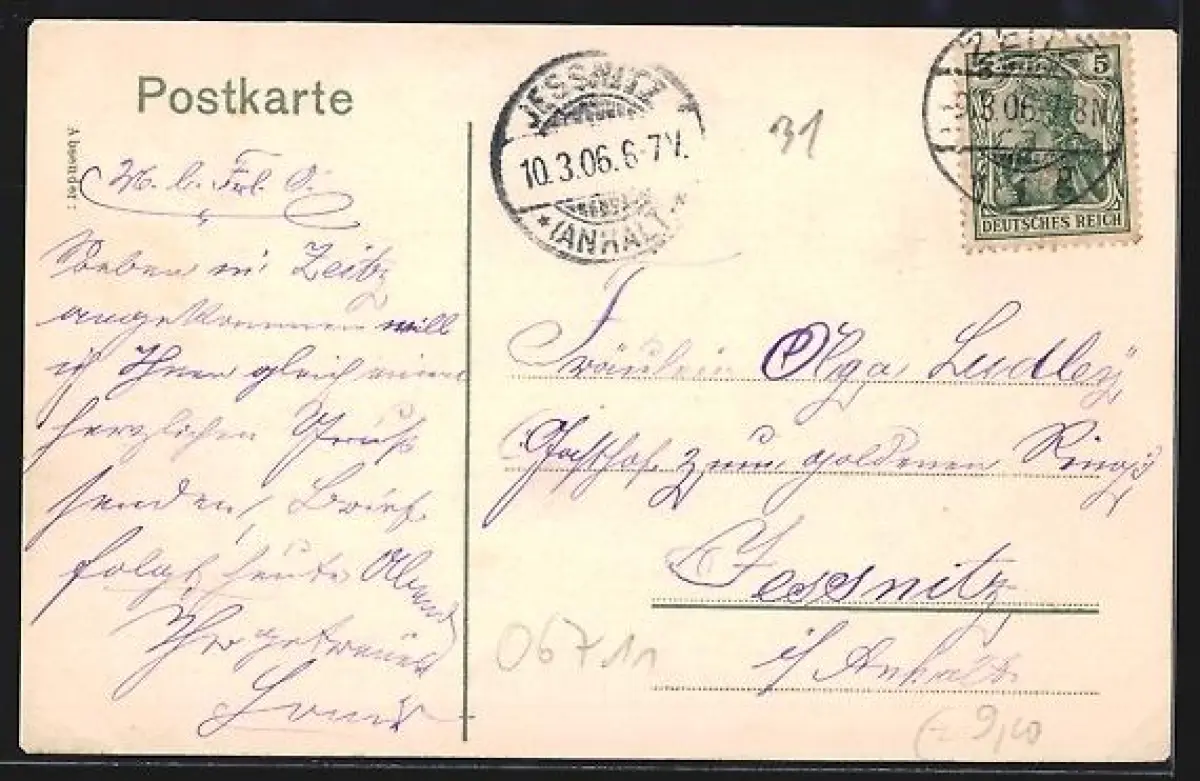 Postkarte
Absender:
M. l. Frl. O.
Soeben in Zeitz
angekommen will
ich Ihnen gleich einen
herzlichen Gruß
senden, Brief
folgt heute Abend
Ihr getreuer
Louis
JESSNITZ
10.3.06. 6-7V.
(ANHALT)
31
ZEITZ
.3.06. 7-8N
5
DEUTSCHES REICH
Fräulein Olga
Gasthof zum goldenen Ring
Jessnitz
i/ Anhalt
06711
9,20